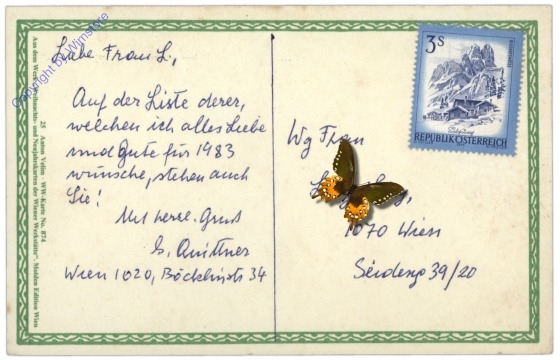 Liebe Frau L.,
Auf der Liste derer,
welchen ich alles Liebe
und Gute für 1983
wünsche, stehen auch
Sie!
Mit herzl. Gruß
Quittner
Wien 1020, Böcklinstr 34
Wg Frau
1070 Wien
39/20
3s
REPUBLIK ÖSTERREICH
Copyright by Wjmstore
Aus dem Werk „Weihnachts- und Neujahrskarten der Wiener Werkstätte“, Molden Edition Wien
25 Anton Velim - WW-Karte No. 874